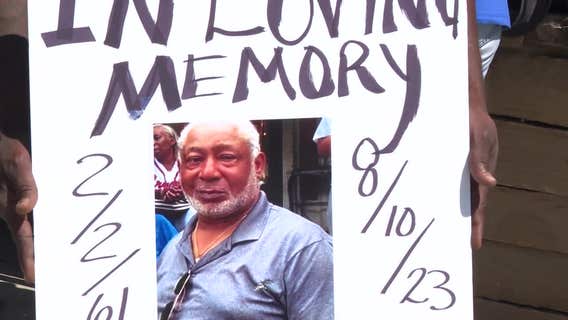 IN LOVING
MEMORY
2/2/61
8/10/23